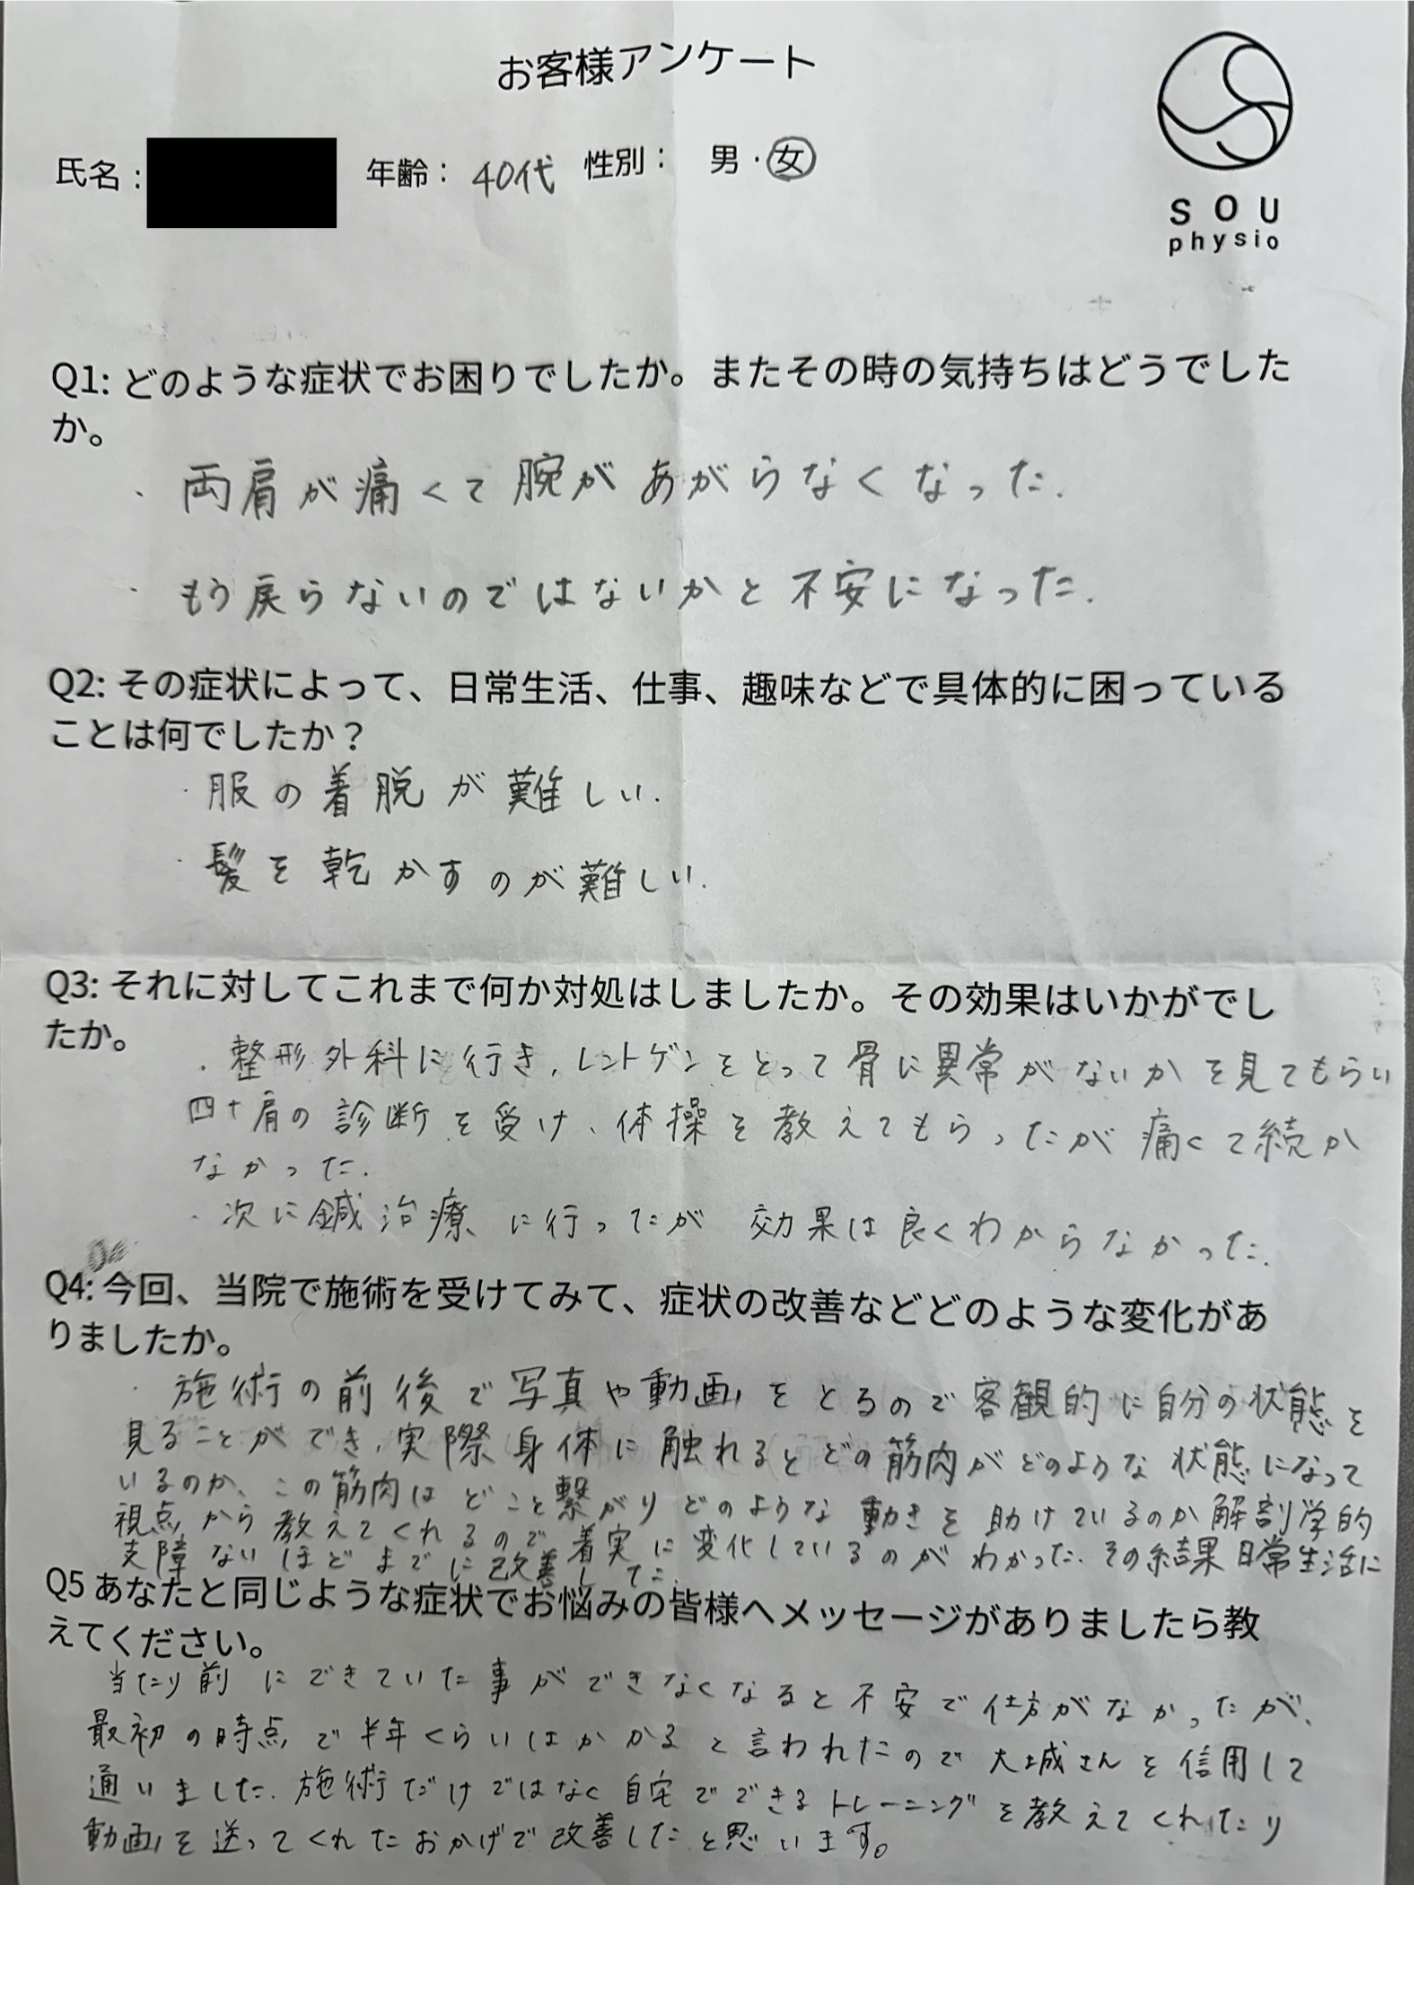 お客様アンケート
氏名： 年齢： 40代 性別： 男・女
SOU
physio
Q1: どのような症状でお困りでしたか。またその時の気持ちはどうでした
か。
・両肩が痛くて腕があがらなくなった.
・もう戻らないのではないかと不安になった.
Q2: その症状によって、日常生活、仕事、趣味などで具体的に困っている
ことは何でしたか？
・服の着脱が難しい.
・髪を乾かすのが難しい.
Q3: それに対してこれまで何か対処はしましたか。その効果はいかがでし
たか。
・整形外科に行き、レントゲンをとって骨に異常がないかを見てもらい
四十肩の診断を受け、体操を教えてもらったが痛くて続か
なかった.
・次に鍼治療に行ったが 効果は良くわからなかった.
Q4: 今回、当院で施術を受けてみて、症状の改善などどのような変化があ
りましたか。
・施術の前後で写真や動画をとるので客観的に自分の状態を
見ることができ、実際身体に触れるとどの筋肉がどのような状態になって
いるのか、この筋肉はどこと繋がりどのような動きを助けているのか解剖学的
視点から教えてくれるので着実に変化しているのがわかった. その結果日常生活に
支障ないほどまでに改善した.
Q5 あなたと同じような症状でお悩みの皆様へメッセージがありましたら教
えてください。
当たり前にできていた事ができなくなると不安で仕方がなかったが、
最初の時点で半年くらいはかかると言われたので大城さんを信用して
通いました. 施術だけではなく自宅でできるトレーニングを教えてくれたり
動画を送ってくれたおかげで改善したと思います。